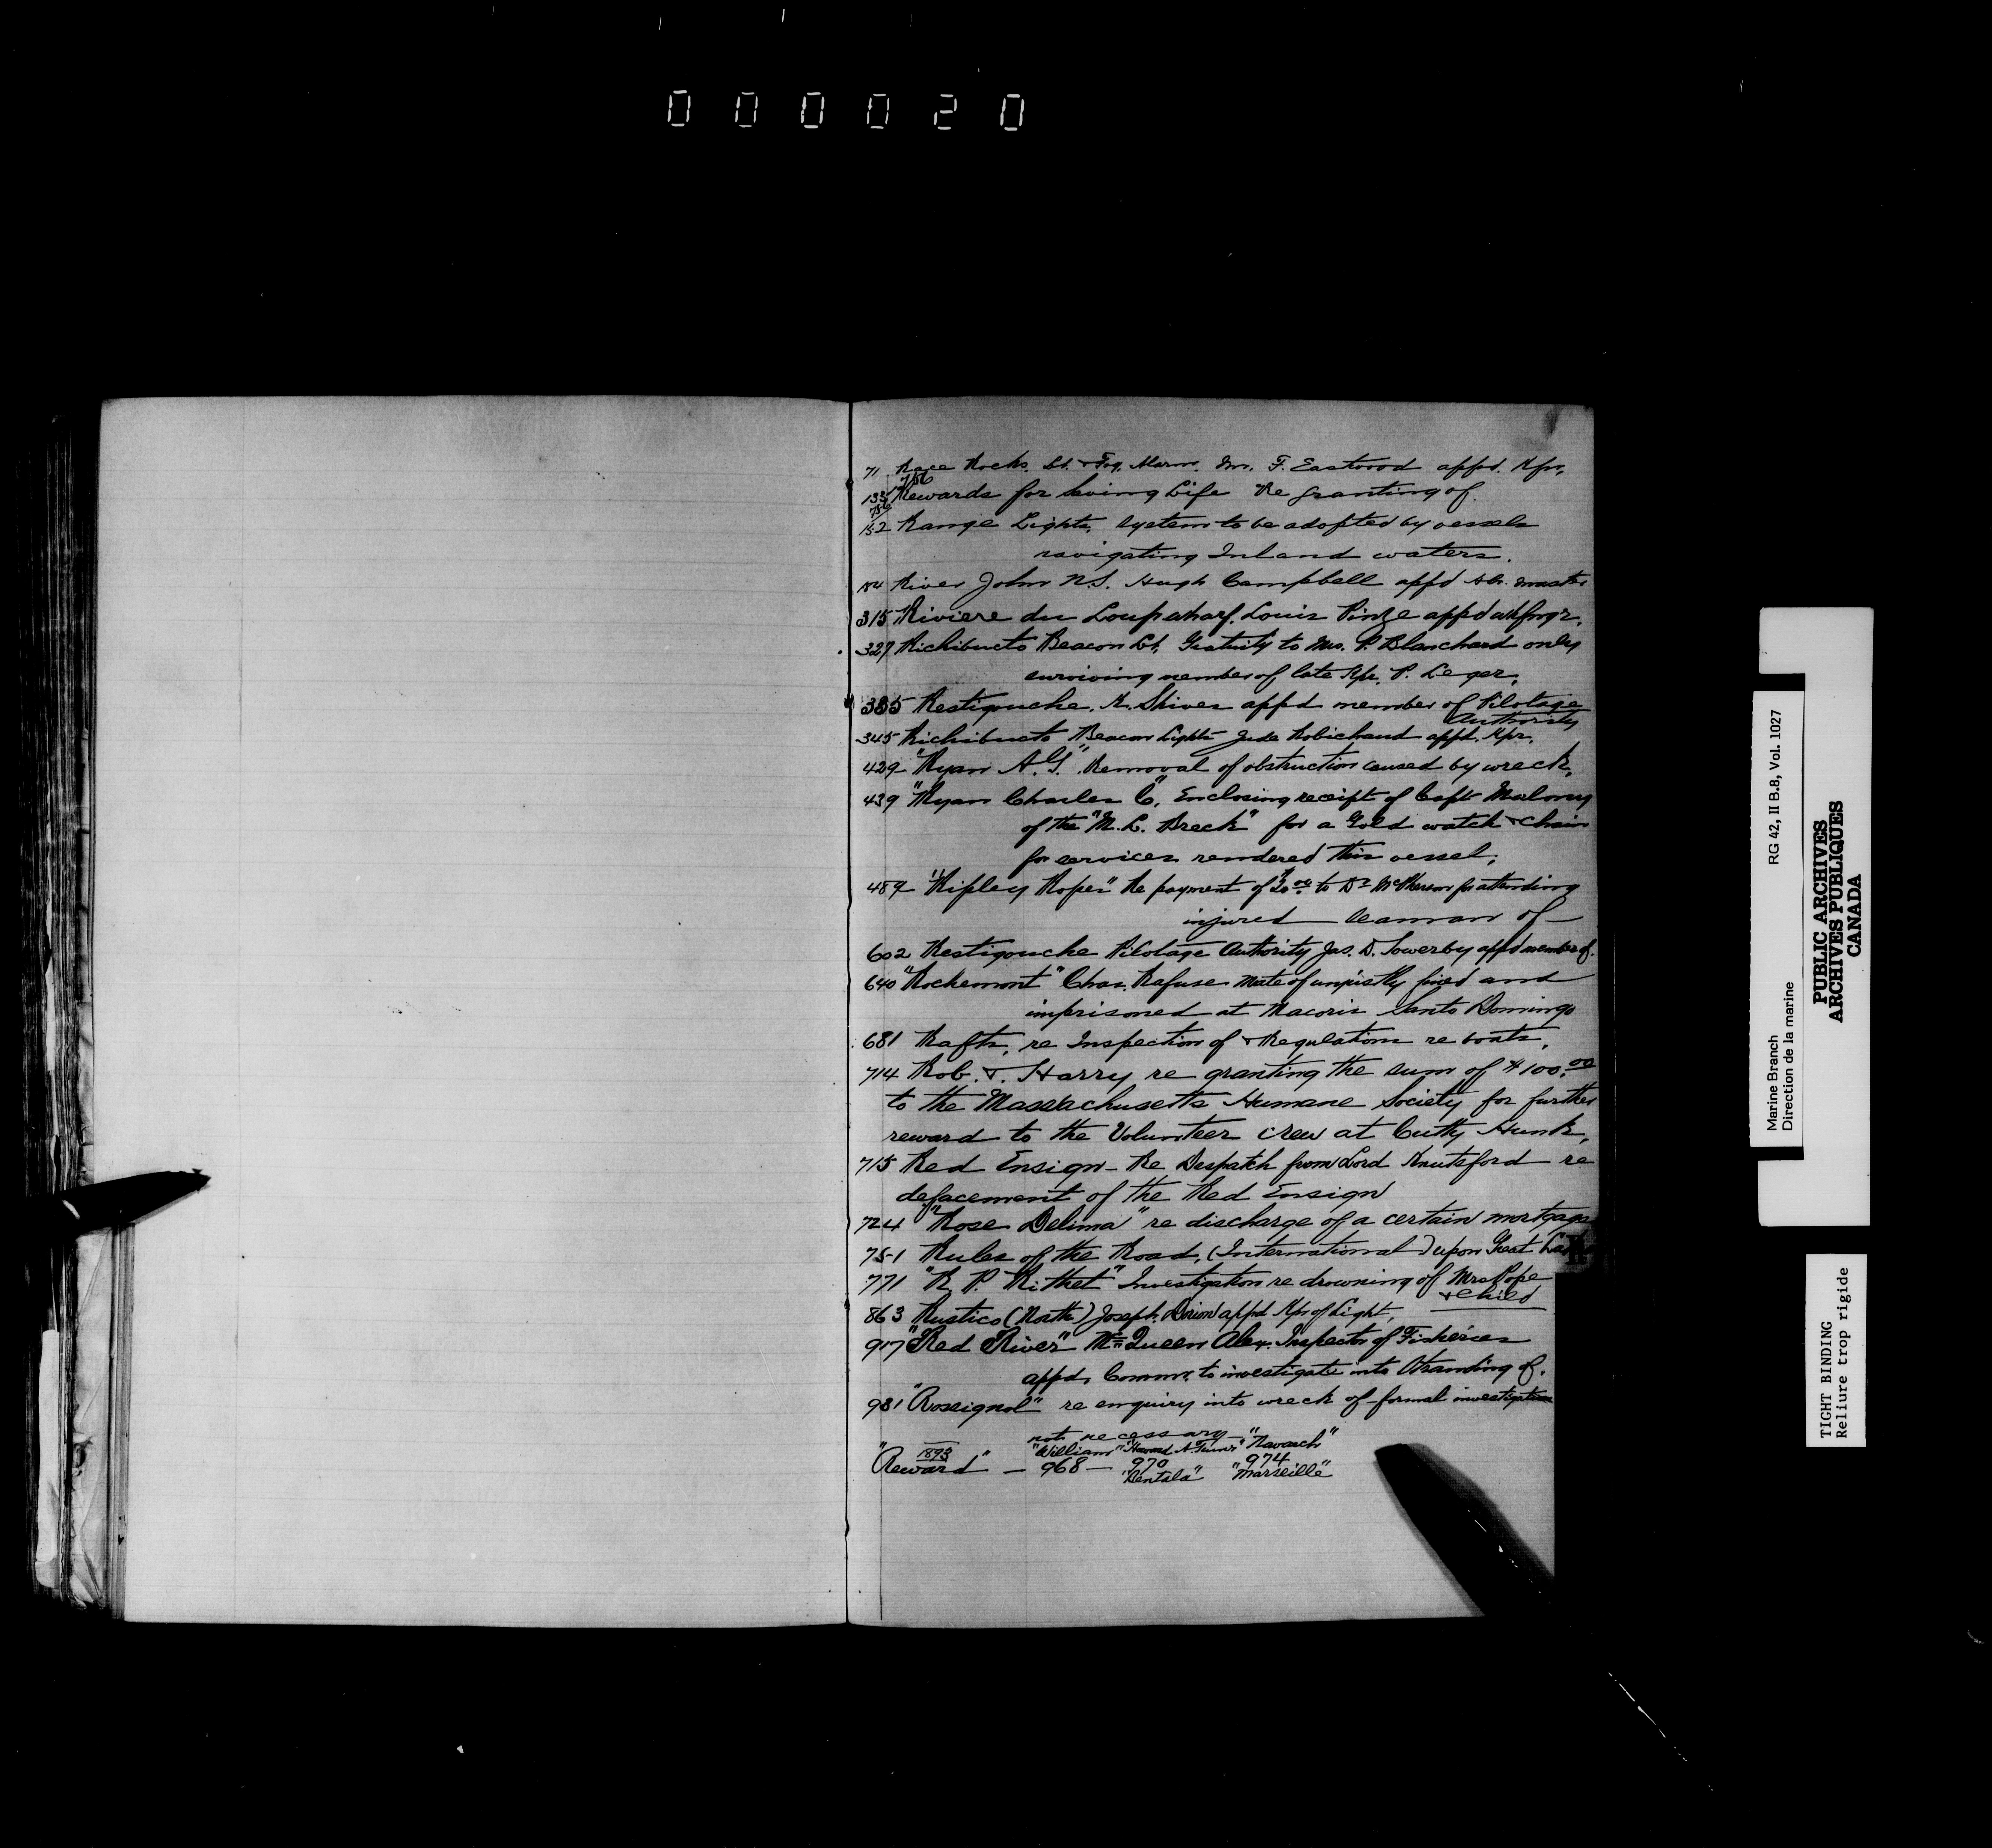 000020
71 Race Rocks. Lt. & Fog. Alarm. Tm. F. Eastwood appd. Kpr.
756
133 Rewards for Saving Life Re granting of.
754
152 Range Lights, System to be adopted by vessels
navigating Inland waters.
184 River John N.S. Hugh Campbell appd Hbr. Master
315 Riviere du Loup wharf. Louis Pinze appd whfngr.
327 Richibucto Beacon Lt. Gratuity to Mrs. P. Blanchard only
surviving member of late Kpr. P. Leger.
335 Restigouche. K. Shives appd member of Pilotage
Authority
345 Richibucto Beacon Lights Jude Robichaud appd. Kpr.
429 "Ryan A.G." Removal of obstruction caused by wreck.
439 "Ryan Charles C", Enclosing receipt of Capt Maloney
of the "M. L. Breck" for a Gold watch & chain
for services rendered this vessel.
489 "Ripley Ropes" Re payment of $20.00 to Dr McPherson for attending
injured Seaman of
602 Restigouche Pilotage Authority Jas. D. Sowerby appd member of.
640 "Rockemont" Chas. Rafuse mate of unjustly fined and
imprisoned at Macoris Santo Domingo
681 Rafts, re Inspection of & Regulations re boats.
714 Rob. & Harry re granting the sum of $100.00
to the Massachusetts Humane Society for further
reward to the Volunteer crew at Cutty Hunk.
715 Red Ensign - Re Despatch from Lord Knutsford re
defacement of the Red Ensign
724 "Rose Delima" re discharge of a certain mortgage
751 Rules of the Road, (International) upon Great Lakes
771 "R. P. Rithet" Investigation re drowning of Mrs Pope
& Child
863 Rustico (North) Joseph Dorion appd Kpr of Light.
917 "Red River" McQueen Alex. Inspector of Fisheries
appd. Commr. to investigate into Stranding of.
981 "Rossignol" re enquiry into wreck of - formal investigation
not necessary -
1893 "William" "Howard A. Turner" "Navarch"
"Reward" - 968 - 970 974
"Kentala" "Marseille"
Marine Branch RG 42, II B.8, Vol. 1027
Direction de la marine
PUBLIC ARCHIVES
ARCHIVES PUBLIQUES
CANADA
TIGHT BINDING
Reliure trop rigide